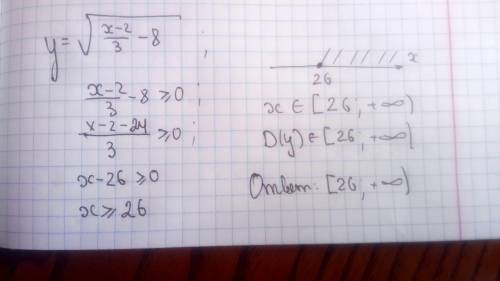 y = √((x-2)/3 - 8) ;
(x-2)/3 - 8 ≥ 0 ;
(x-2-24)/3 ≥ 0 ;
x-26 ≥ 0
x ≥ 26
x
26
x ∈ [26 ; +∞)
D(y) ∈ [26 ; +∞)
Ответ: [26 ; +∞)